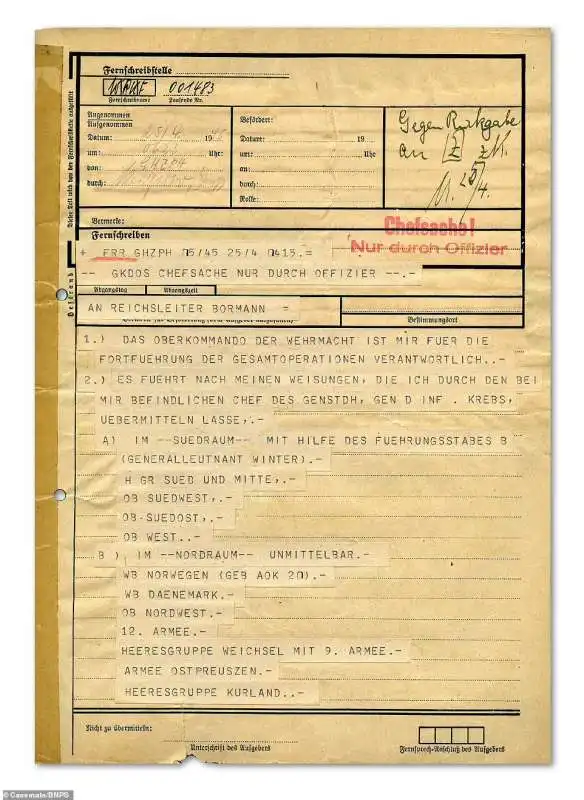 Fernschreibstelle
001483
Fernschreibname Laufende Nr.
Angenommen
Aufgenommen
Datum: 19
um: Uhr
von:
durch:
Befördert:
Datum: 19
um: Uhr
an:
durch:
Rolle:
Gegen Rückgabe
an Z
25/4.
Vermerke:
Chefsache!
Nur durch Offizier
Fernschreiben
+ FRR GHZPH 05/45 25/4 0415.=
-- GKDOS CHEFSACHE NUR DURCH OFFIZIER --.-
Abgangstag Abgangszeit
AN REICHSLEITER BORMANN =
Bestimmungsort
1.) DAS OBERKOMMANDO DER WEHRMACHT IST MIR FUER DIE
FORTFUEHRUNG DER GESAMTOPERATIONEN VERANTWORTLICH..-
2.) ES FUEHRT NACH MEINEN WEISUNGEN, DIE ICH DURCH DEN BEI
MIR BEFINDLICHEN CHEF DES GENSTDH, GEN D INF . KREBS,
UEBERMITTELN LASSE,.-
A) IM --SUEDRAUM-- MIT HILFE DES FUEHRUNGSSTABES B
(GENERALLEUTNANT WINTER).-
H GR SUED UND MITTE,.-
OB SUEDWEST,.-
OB-SUEDOST,.-
OB WEST..-
B ) IM --NORDRAUM-- UNMITTELBAR.-
WB NORWEGEN (GEB AOK 20).-
WB DAENEMARK.-
OB NORDWEST.-
12. ARMEE.-
HEERESGRUPPE WEICHSEL MIT 9. ARMEE.-
ARMEE OSTPREUSZEN.-
HEERESGRUPPE KURLAND..-
Nicht zu übermitteln:
Unterschrift des Aufgebers
Fernsprech-Anschluß des Aufgebers
© Casemate/BNPS